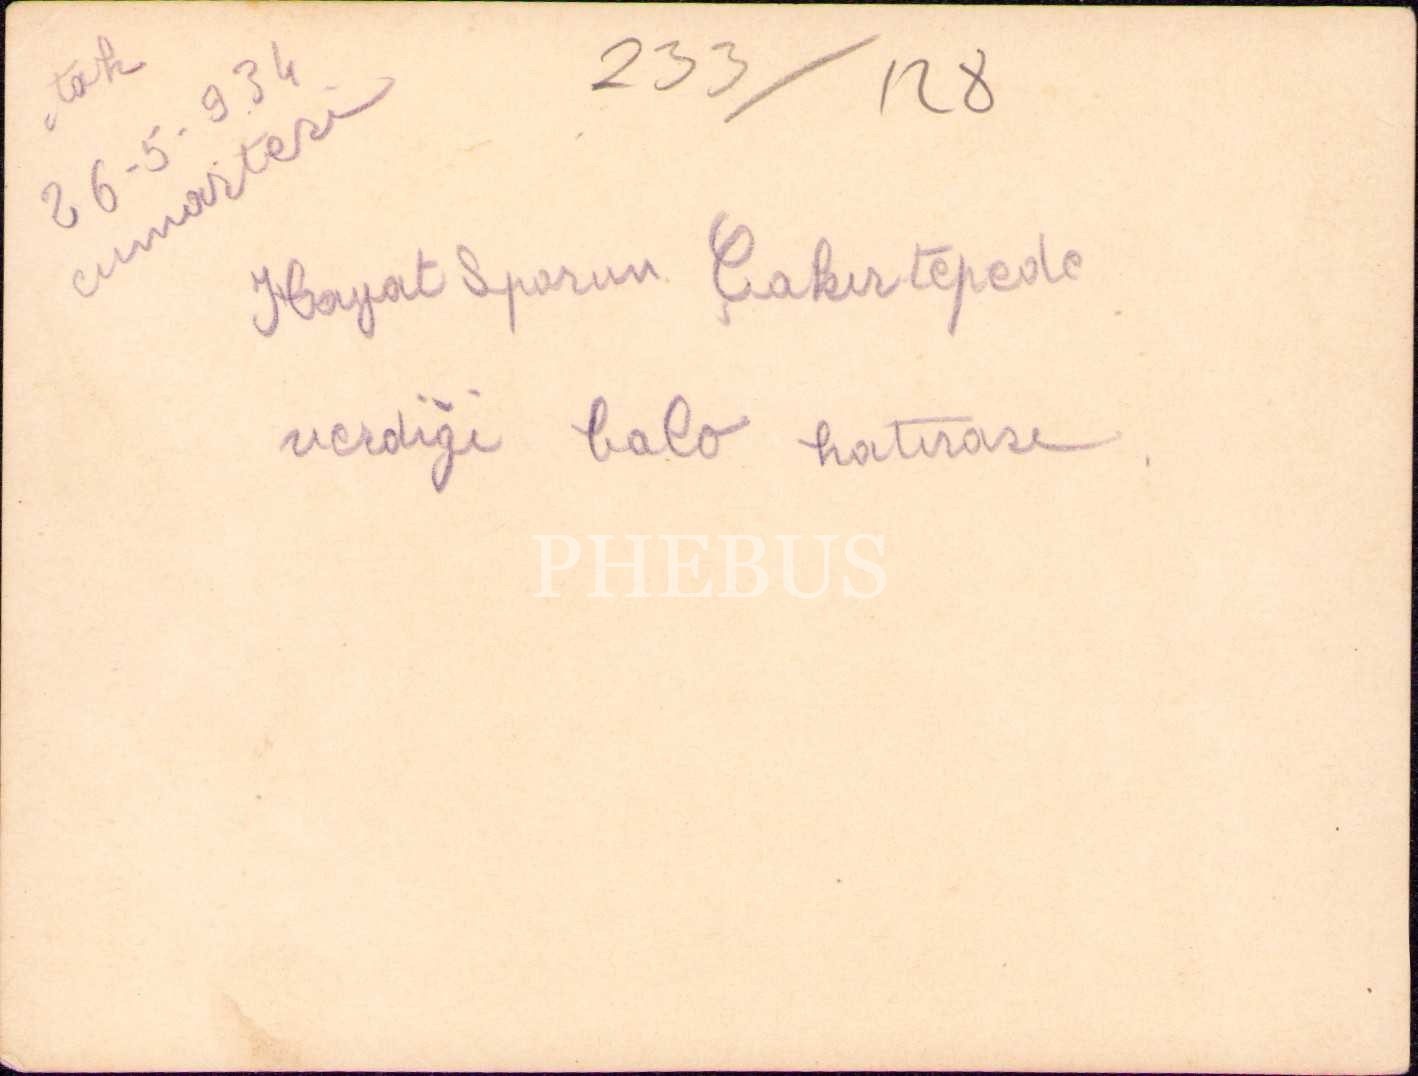 233/128
26-5-934
cumartesi
Hayat Sporun Çakırtepede
verdiği balo hatırası.
PHEBUS